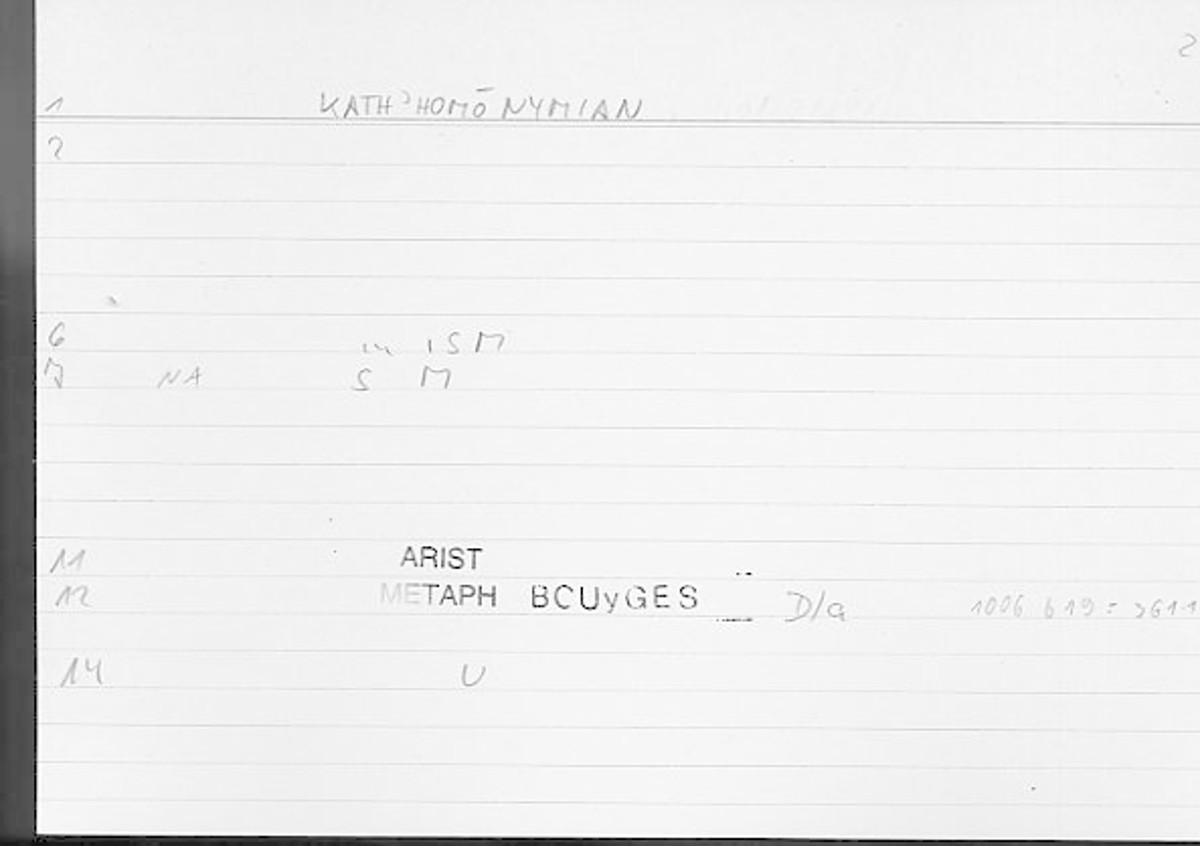 2
1 KATH'HOMŌNYMIAN
2
6 in ISM
7 NA S M
11 ARIST
12 METAPH BCUyGES D/a 1006 b 19 =
14 U